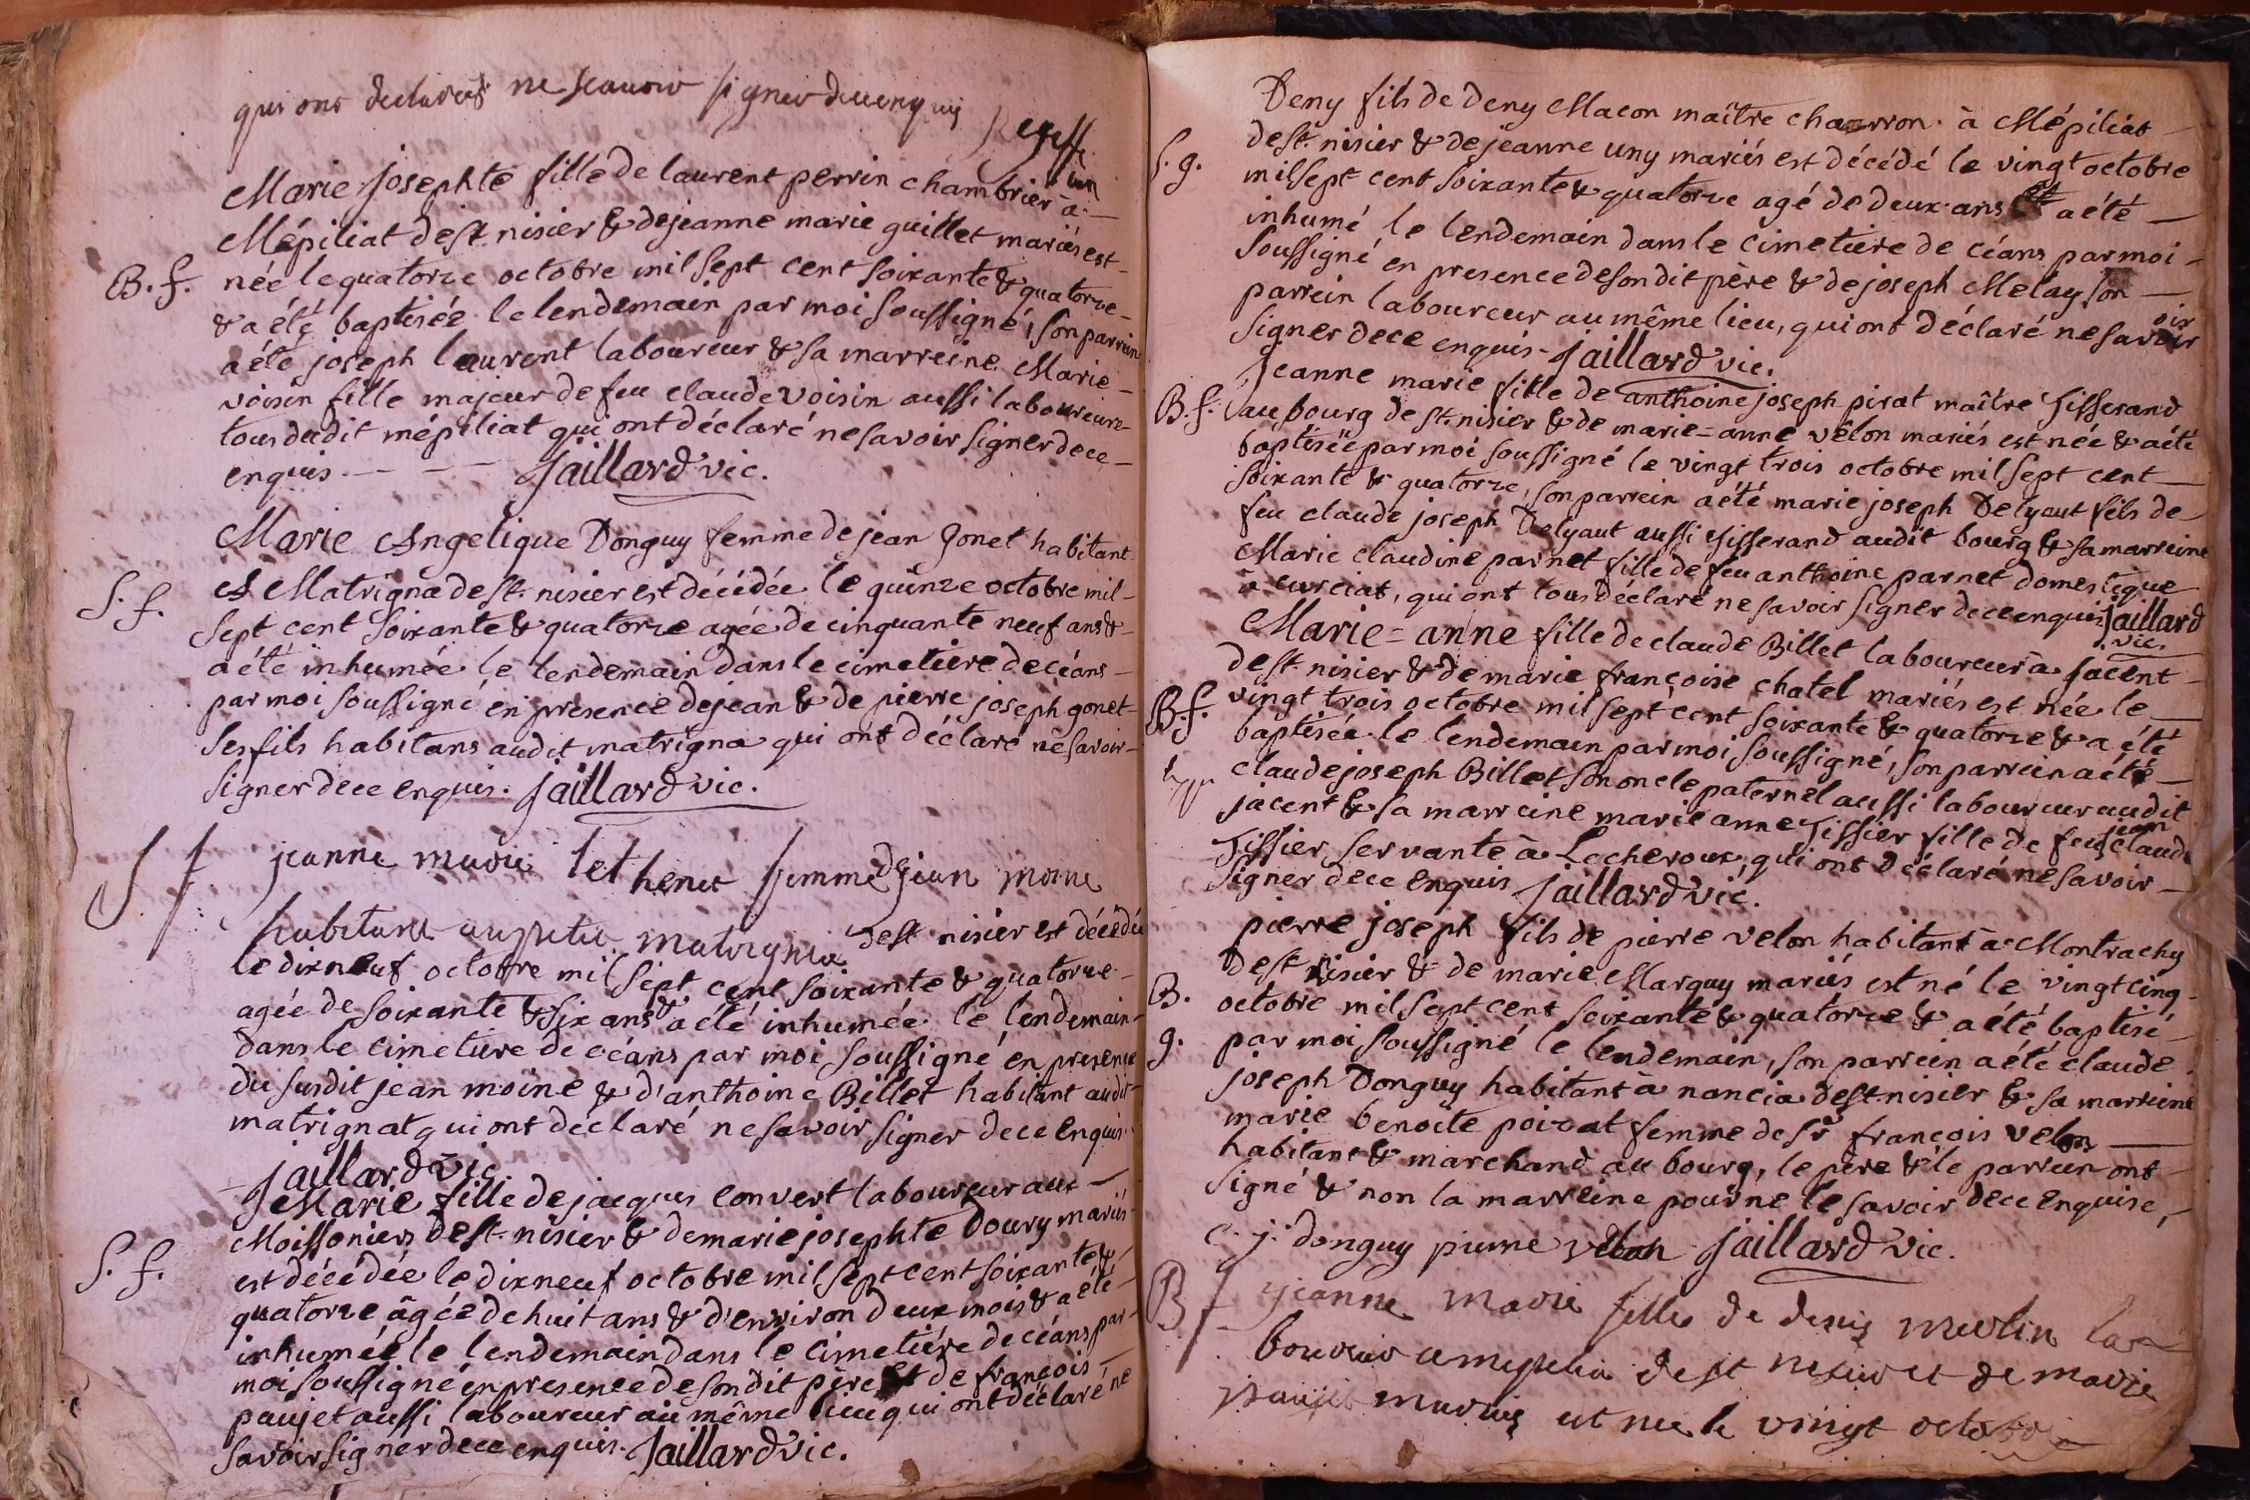 qui ont declarés ne scauoir signer de ce enquis
Marie josephte fille de laurent perrin chambrier à
Mépiliat de st. nisier & de jeanne marie guillet mariés est
B. f. née le quatorze octobre mil sept cent soixante & quatorze
& a été baptisée le lendemain par moi soussigné, son parrein
a été joseph laurent laboureur & sa marreine Marie
voisin fille majeur de feu claude voisin aussi laboureur
tous dudit mépiliat qui ont déclaré ne savoir signer de ce
enquis. Jaillard vic.
Marie Angelique Donguy femme de jean Gonet habitant
S. f. A Matrigna de st. nisier est décédée le quinze octobre mil
sept cent soixante & quatorze agée de cinquante neuf ans &
a été inhumée le lendemain dans le cimetière de céans
par moi soussigné en presence de jean & de pierre joseph gonet
ses fils habitans audit matrigna qui ont déclaré ne savoir
signer de ce enquis. Jaillard vic.
S f jeanne marie femme de jean moine
habitant au petit matrignia de st. nisier est décédée
le dix neuf octobre mil sept cent soixante & quatorze
agée de soixante & six ans & a été inhumée le lendemain
dans le cimetière de céans par moi soussigné en presence
du susdit jean moine & d'anthoine Billet habitant audit
matrignat qui ont déclaré ne savoir signer de ce enquis.
Jaillard vic.
Marie fille de jacques convert laboureur aux
Moissoniers de st. nisier & de marie josephte Doury mariés
S. f. est décédée le dix neuf octobre mil sept cent soixante &
quatorze âgée de huit ans & d'environ deux mois & a été
inhumée le lendemain dans le cimetière de céans par
moi soussigné en presence de son dit père & de françois
paujet aussi laboureur au même lieu qui ont déclaré ne
savoir signer de ce enquis. Jaillard vic.
Deny fils de deny Macon maître charron à Mépiliat
S. g. de st. nisier & de jeanne uny mariés est décédé le vingt octobre
mil sept cent soixante & quatorze agé de deux ans et a été
inhumé le lendemain dans le cimetiere de céans par moi
soussigné en presence de son dit père & de joseph Melay son
parrein laboureur au même lieu, qui ont déclaré ne savoir
signer de ce enquis. Jaillard vic.
Jeanne marie fille de anthoine joseph pirat maître Tisserand
B. f. au bourg de st. nisier & de marie=anne vélon mariés est née & a été
baptisée par moi soussigné le vingt trois octobre mil sept cent
soixante & quatorze, son parrein a été marie joseph Delyaut fils de
feu claude joseph Delyaut aussi Tisserand audit bourg & sa marreine
Marie claudine parnet fille de feu anthoine parnet domestique
à curciat, qui ont tous déclaré ne savoir signer de ce enquis Jaillard
vic.
Marie=anne fille de claude Billet laboureur à Jacent
de st. nisier & de marie françoise chatel mariés est née le
B. f. vingt trois octobre mil sept cent soixante & quatorze & a été
baptisée le lendemain par moi soussigné, son parrein a été
claude joseph Billet son oncle paternel aussi laboureur audit
jacent & sa marreine marie anne Tissier fille de feu jean claude
Tissier servante à Lecheroux, qui ont déclaré ne savoir
signer de ce enquis Jaillard vic.
pierre joseph fils de pierre velon habitant à Montrachy
de st. nisier & de marie Marguy mariés est né le vingt cinq
B. octobre mil sept cent soixante & quatorze & a été baptisé
g. par moi soussigné le lendemain, son parrein a été claude
joseph Donguy habitant à nancia de st. nisier & sa marreine
marie benoite poizat femme de Sr. françois velon
habitant & marchand au bourg, le père & le parrein ont
signé & non la marreine pour ne le savoir de ce enquise,
c. j. donguy pierre velon Jaillard vic.
B f jeanne marie fille de denis merlin la
boureur a mepilia de st nisier et de marie
paujet mariés est née le vingt octobre